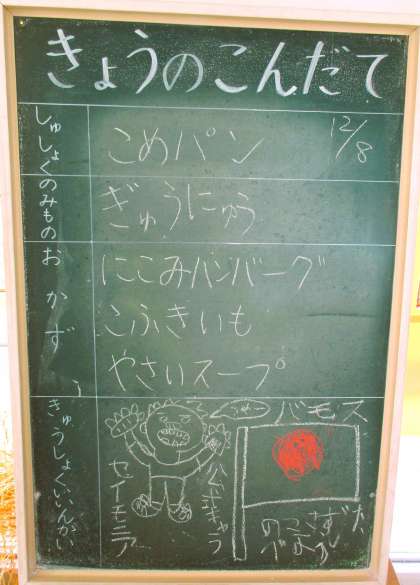 きょうのこんだて
12/8
しゅしょく
こめパン
のみもの
ぎゅうにゅう
おかず
にこみハンバーグ
こふきいも
やさいスープ
きゅうしょくいいんかい
バモス
セイモニア